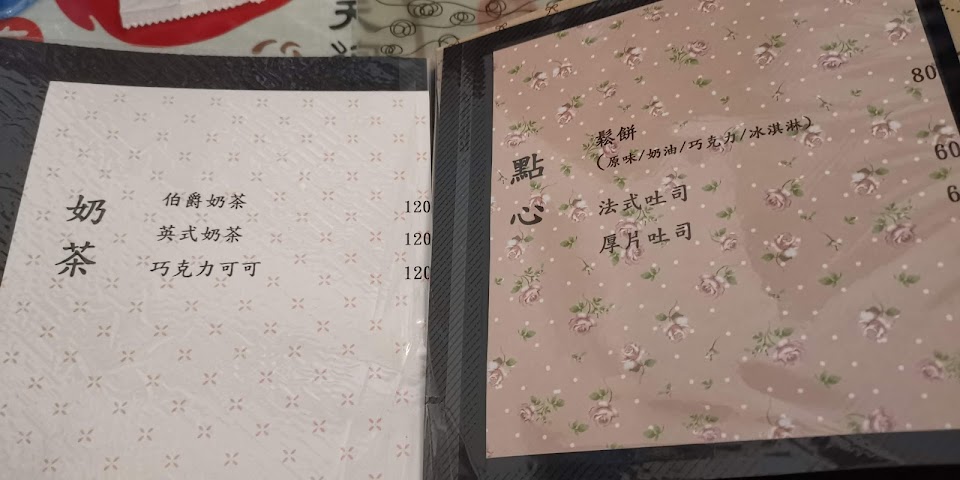 奶茶
伯爵奶茶 120
英式奶茶 120
巧克力可可 120
點心
鬆餅 80
(原味/奶油/巧克力/冰淇淋)
法式吐司 60
厚片吐司
天